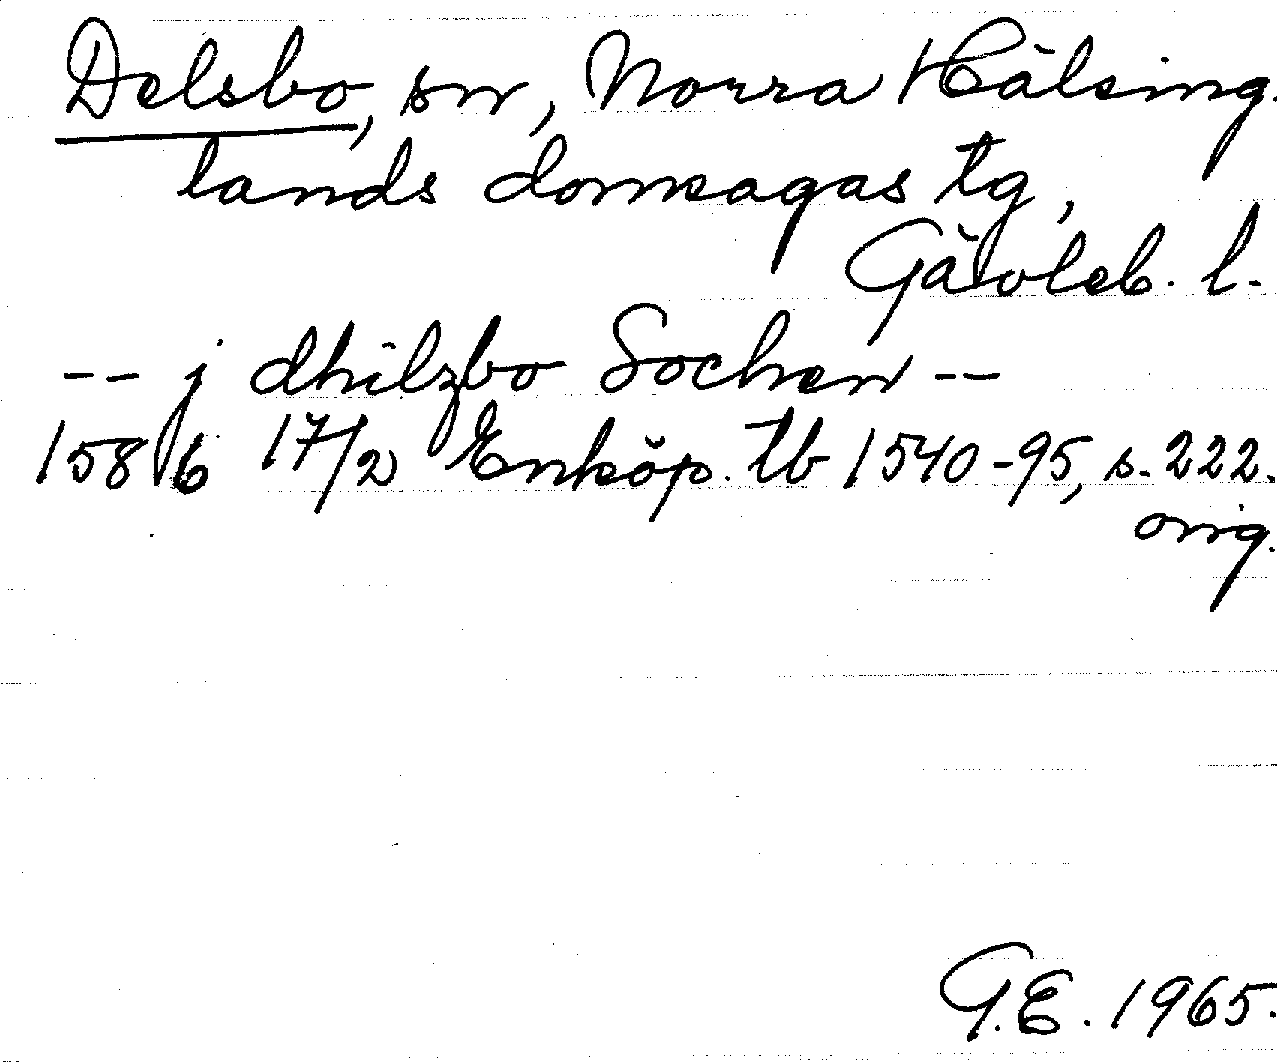 Delsbo, sn, Norra Hälsing.
lands domsagas tg,
Gävleb. l.
-- j dhilzbo Sochen --
1586 17/2 Enköp. tb 1540-95, s. 222.
orig.
G.E. 1965.